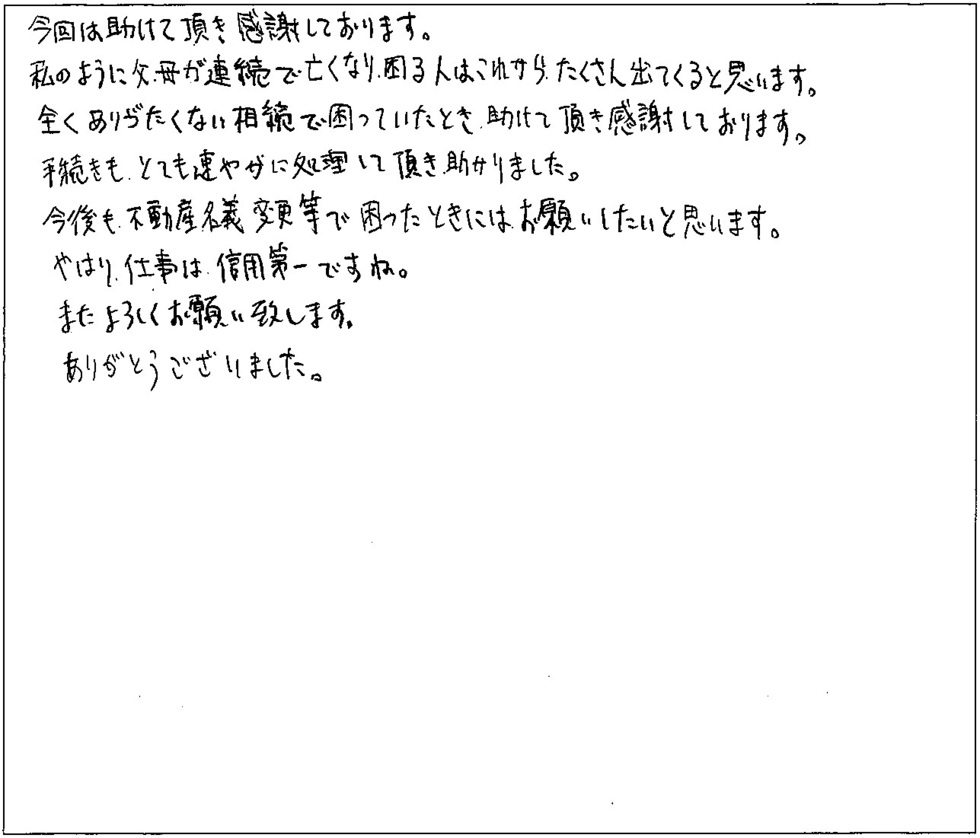 今回は助けて頂き感謝しております。
私のように父、母が連続で亡くなり、困る人はこれから、たくさん出てくると思います。
全くありがたくない相続で困っていたとき、助けて頂き感謝しております。
手続きも、とても速やかに処理して頂き、助かりました。
今後も、不動産名義変更等で困ったときには、お願いしたいと思います。
やはり、仕事は、信用第一ですね。
またよろしくお願い致します。
ありがとうございました。